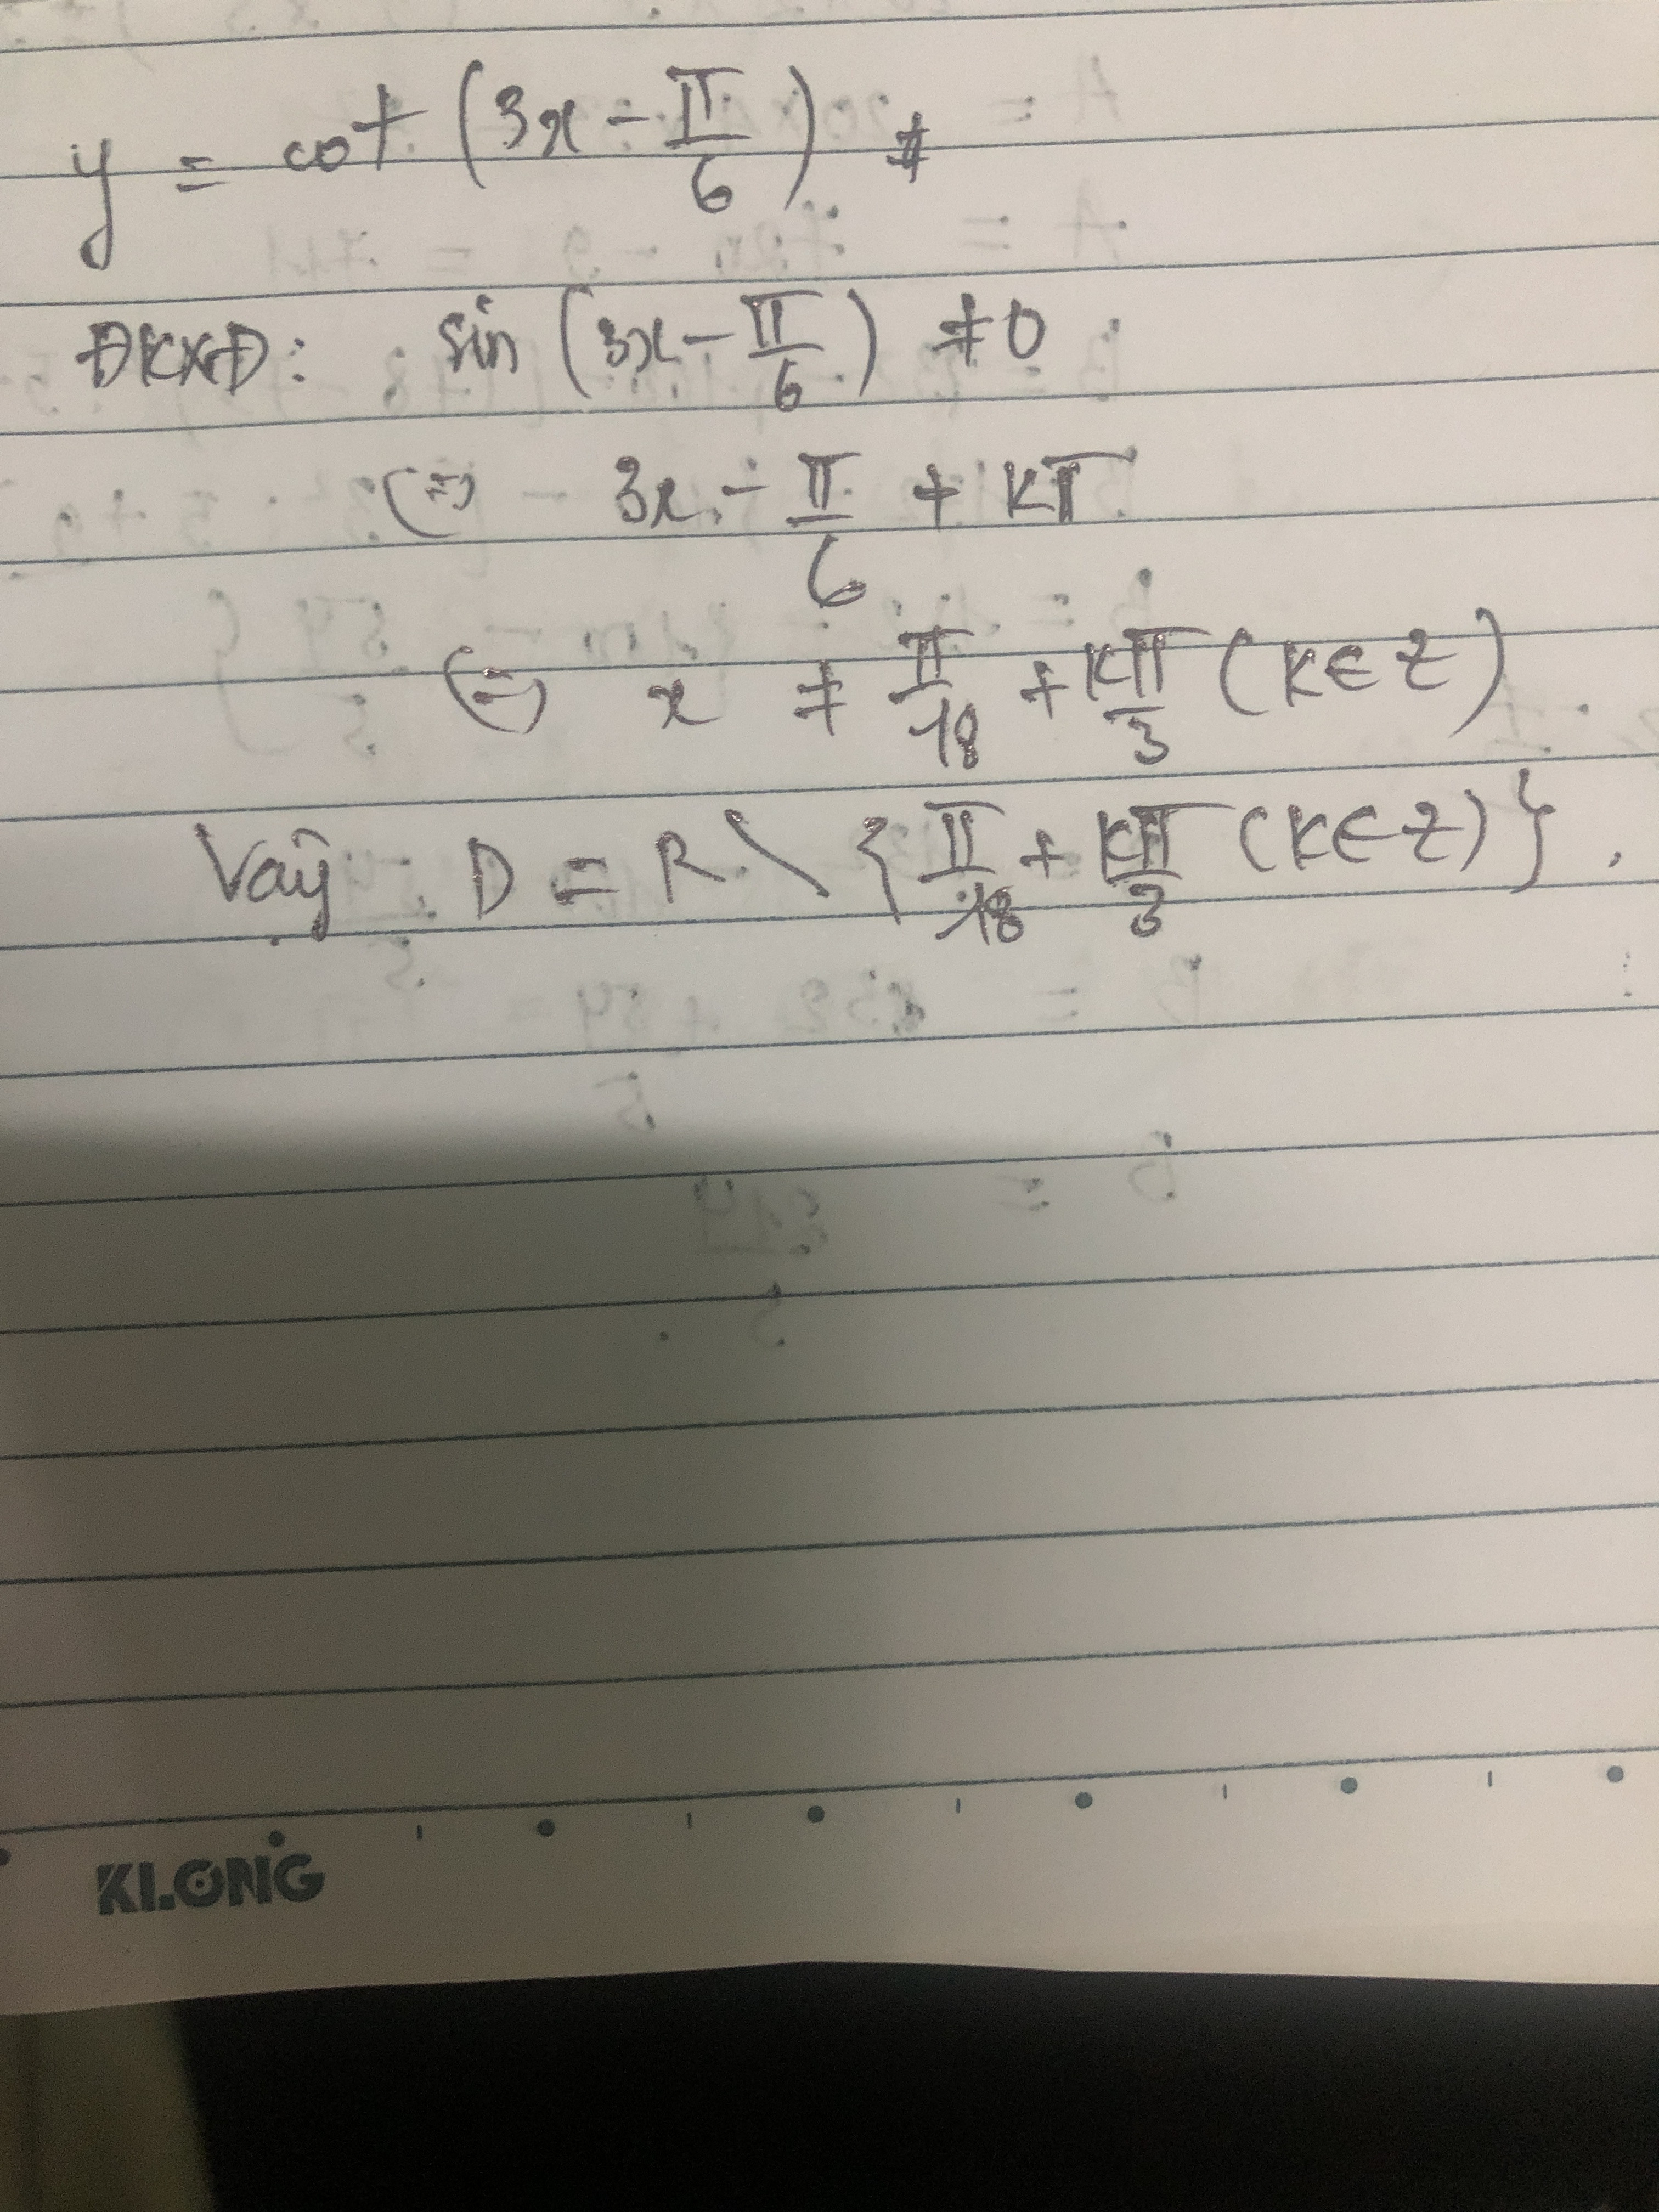 y = cot (3x - π/6) #
ĐKXĐ: sin (3x - π/6) ≠ 0
⇔ 3x - π/6 + kπ
⇔ x ≠ π/18 + kπ/3 (k ∈ Z)
Vậy D = R \ {π/18 + kπ/3 (k ∈ Z)}.
KLONG